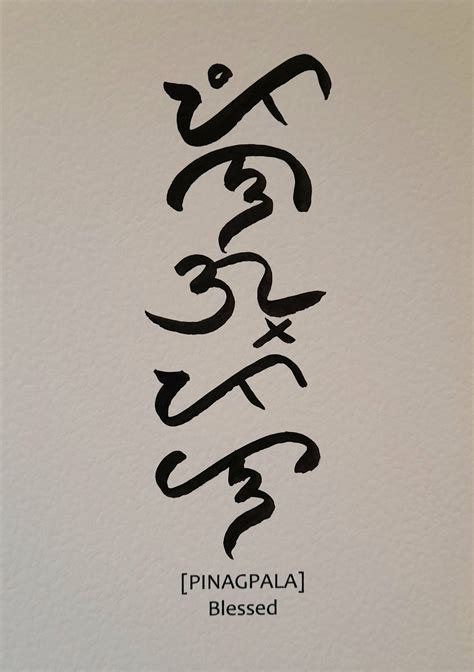 ᜉᜒᜈᜄ᜔ᜉᜎ
[PINAGPALA]
Blessed